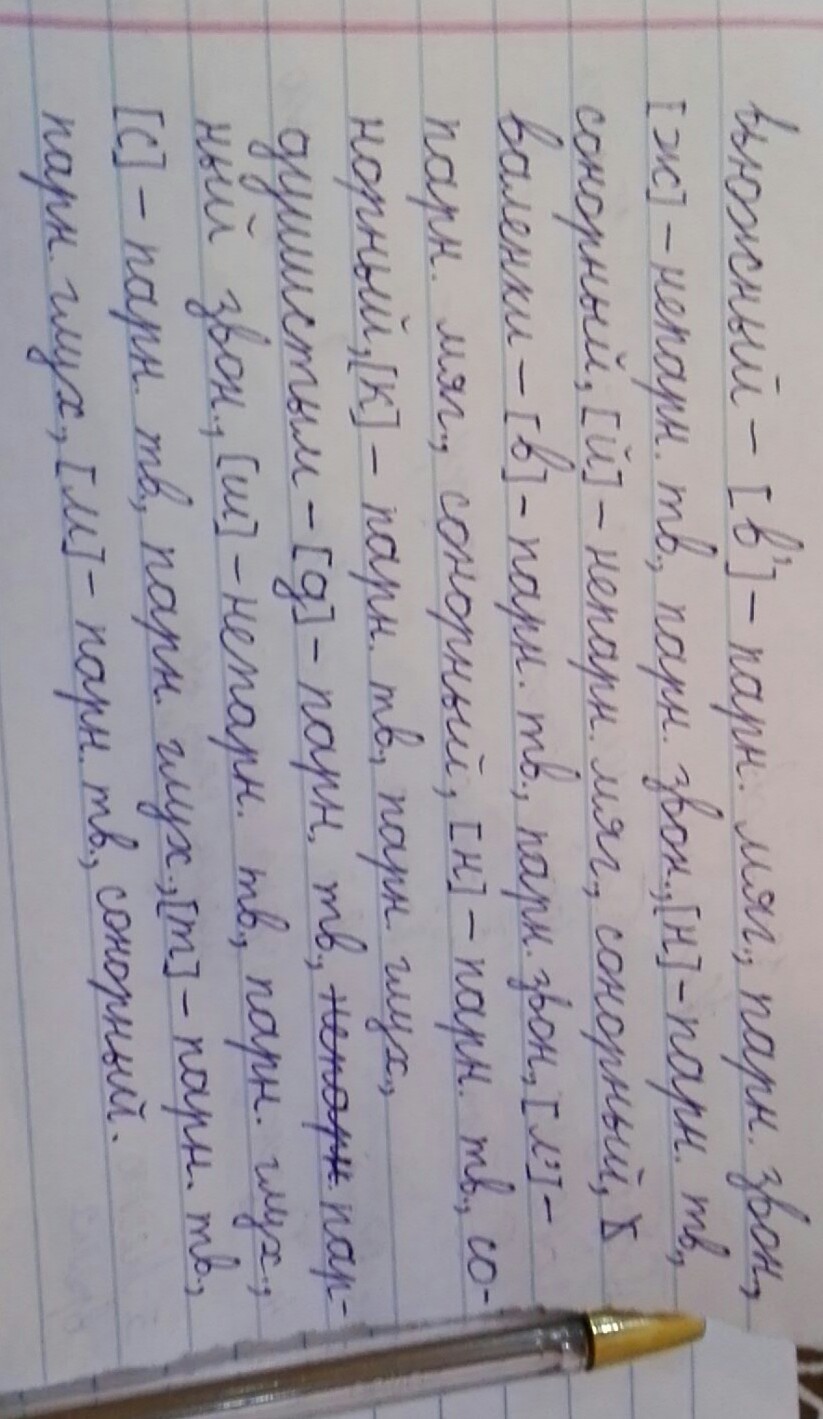 вьюжный – [в'] – парн. мяг., парн. звон.,
[ж] – непарн. тв., парн. звон., [н] – парн. тв.,
сонорный, [й] – непарн. мяг., сонорный,
валенки – [в] – парн. тв., парн. звон., [л'] –
парн. мяг., сонорный, [н] – парн. тв., со-
норный, [к] – парн. тв., парн. глух.,
душистым – [д] – парн. тв., непарн. пар-
ный звон., [ш] – непарн. тв., парн. глух.,
[с] – парн. тв., парн. глух., [т] – парн. тв.,
парн. глух., [м] – парн. тв., сонорный.